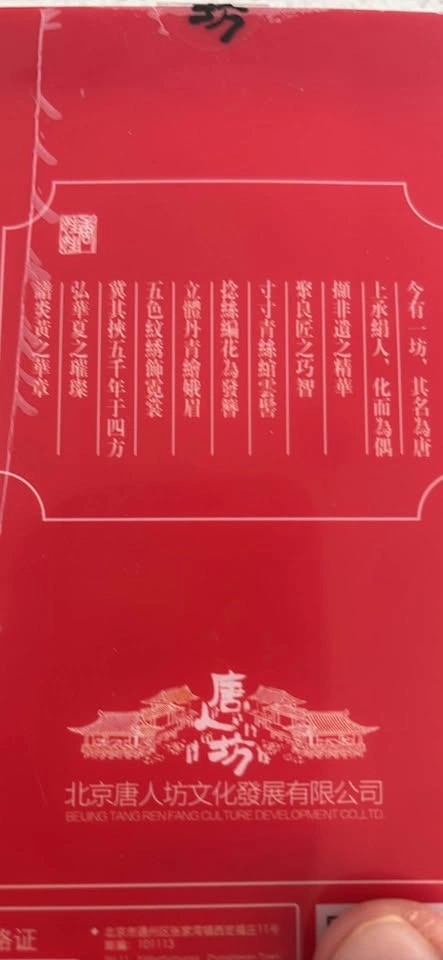 坊
今有一坊、其名為唐
上承絹人、化而為偶
擷非遺之精華
聚良匠之巧智
寸寸青絲綰雲髻
捻絲編花為發簪
立體丹青繪娥眉
五色紋綉飾霓裳
冀其挾五千年于四方
弘華夏之璀璨
譜炎黃之華章
唐人坊
北京唐人坊文化發展有限公司
BEIJING TANG REN FANG CULTURE DEVELOPMENT CO.,LTD.
格证
北京市通州区张家湾镇西定福庄11号
邮编：101113